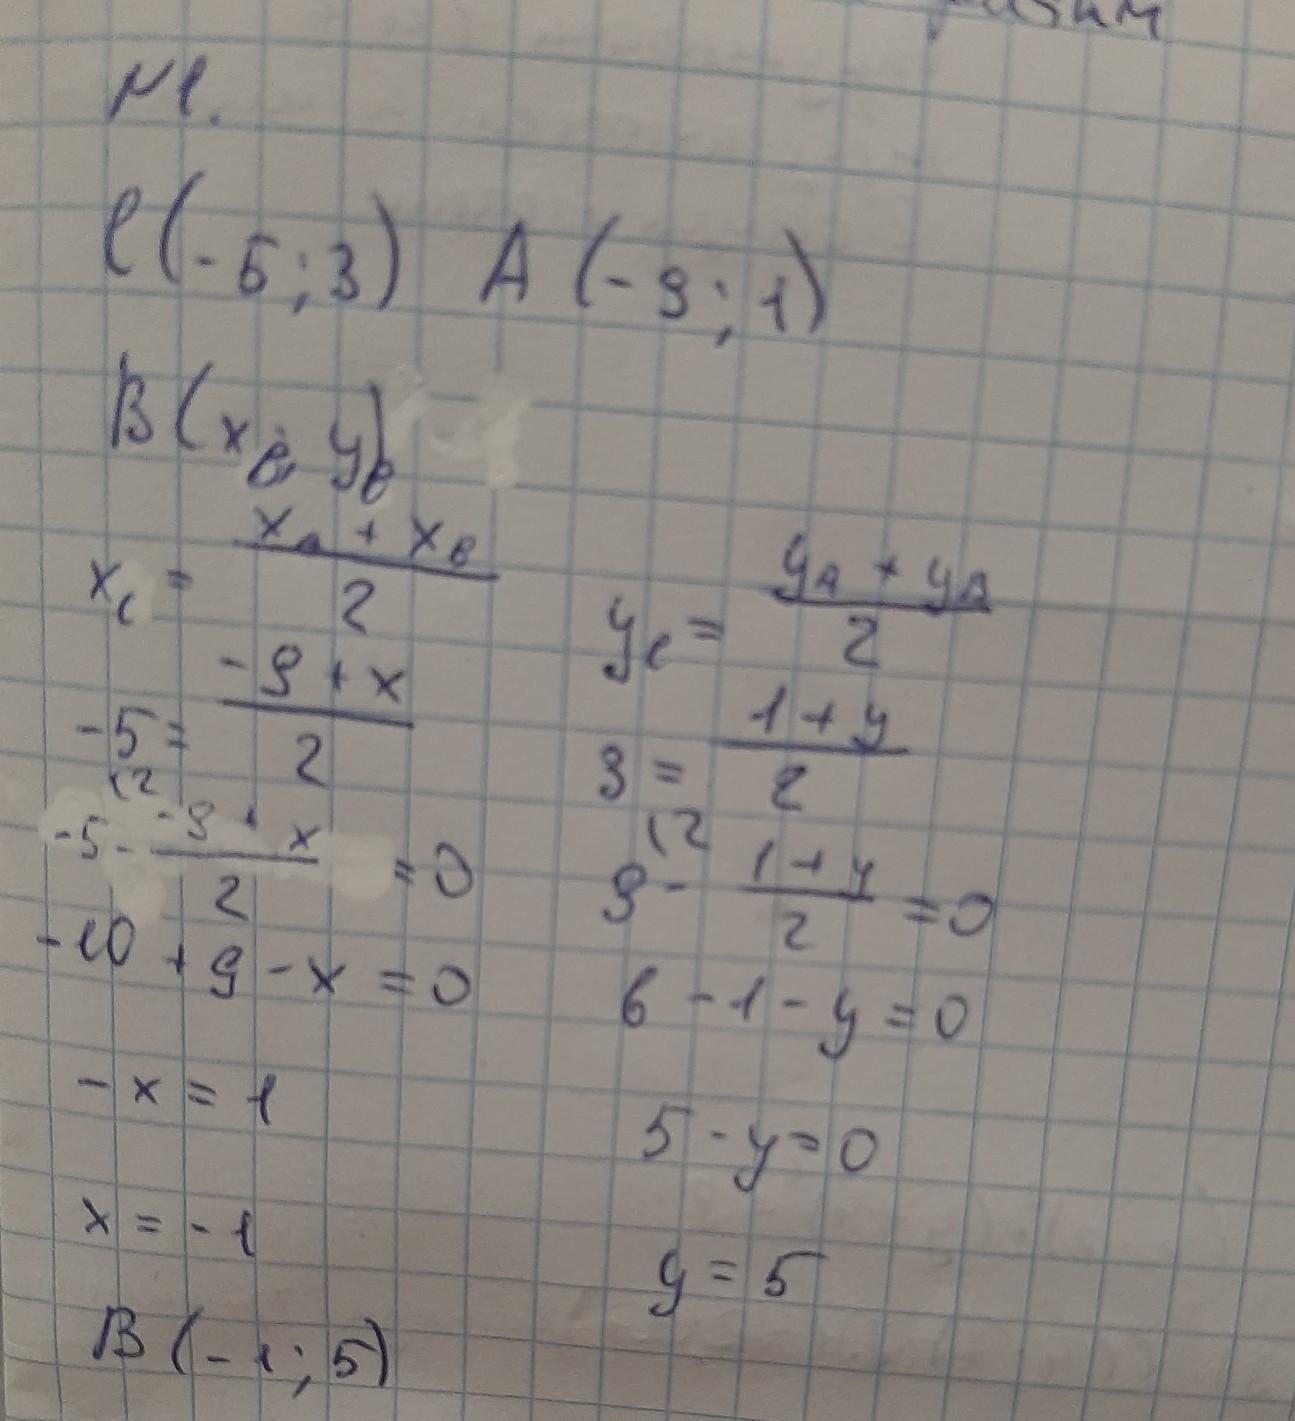 №1.
C(-5;3) A(-9;1)
B(x_B; y_B)
x_C = (x_A + x_B)/2
y_C = (y_A + y_B)/2
-5 = (-9 + x)/2
3 = (1 + y)/2
(2
-5 - (-9 + x)/2 = 0
(2
3 - (1 + y)/2 = 0
-10 + 9 - x = 0
6 - 1 - y = 0
-x = 1
5 - y = 0
x = -1
y = 5
B(-1;5)